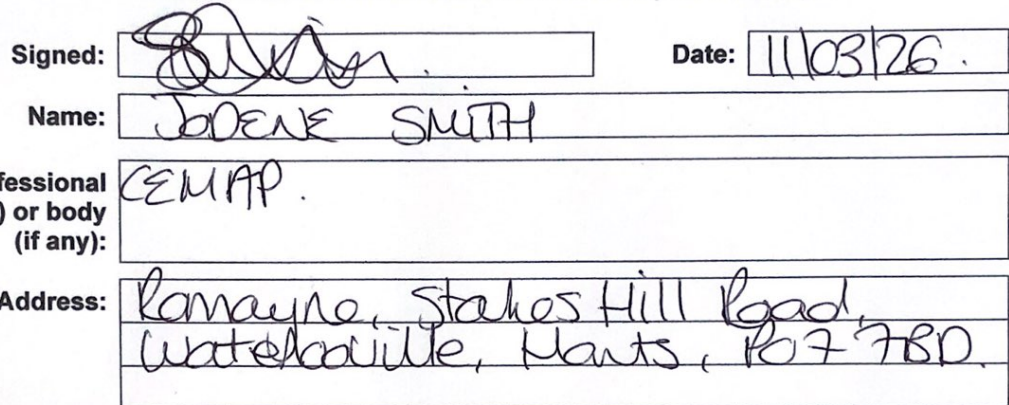 Signed: Date: 11/03/26.
Name: JODENE SMITH
fessional CEMAP.
) or body
(if any):
Address: Romayne, Stakes Hill Road,
Waterlooville, Hants, PO7 7BD.